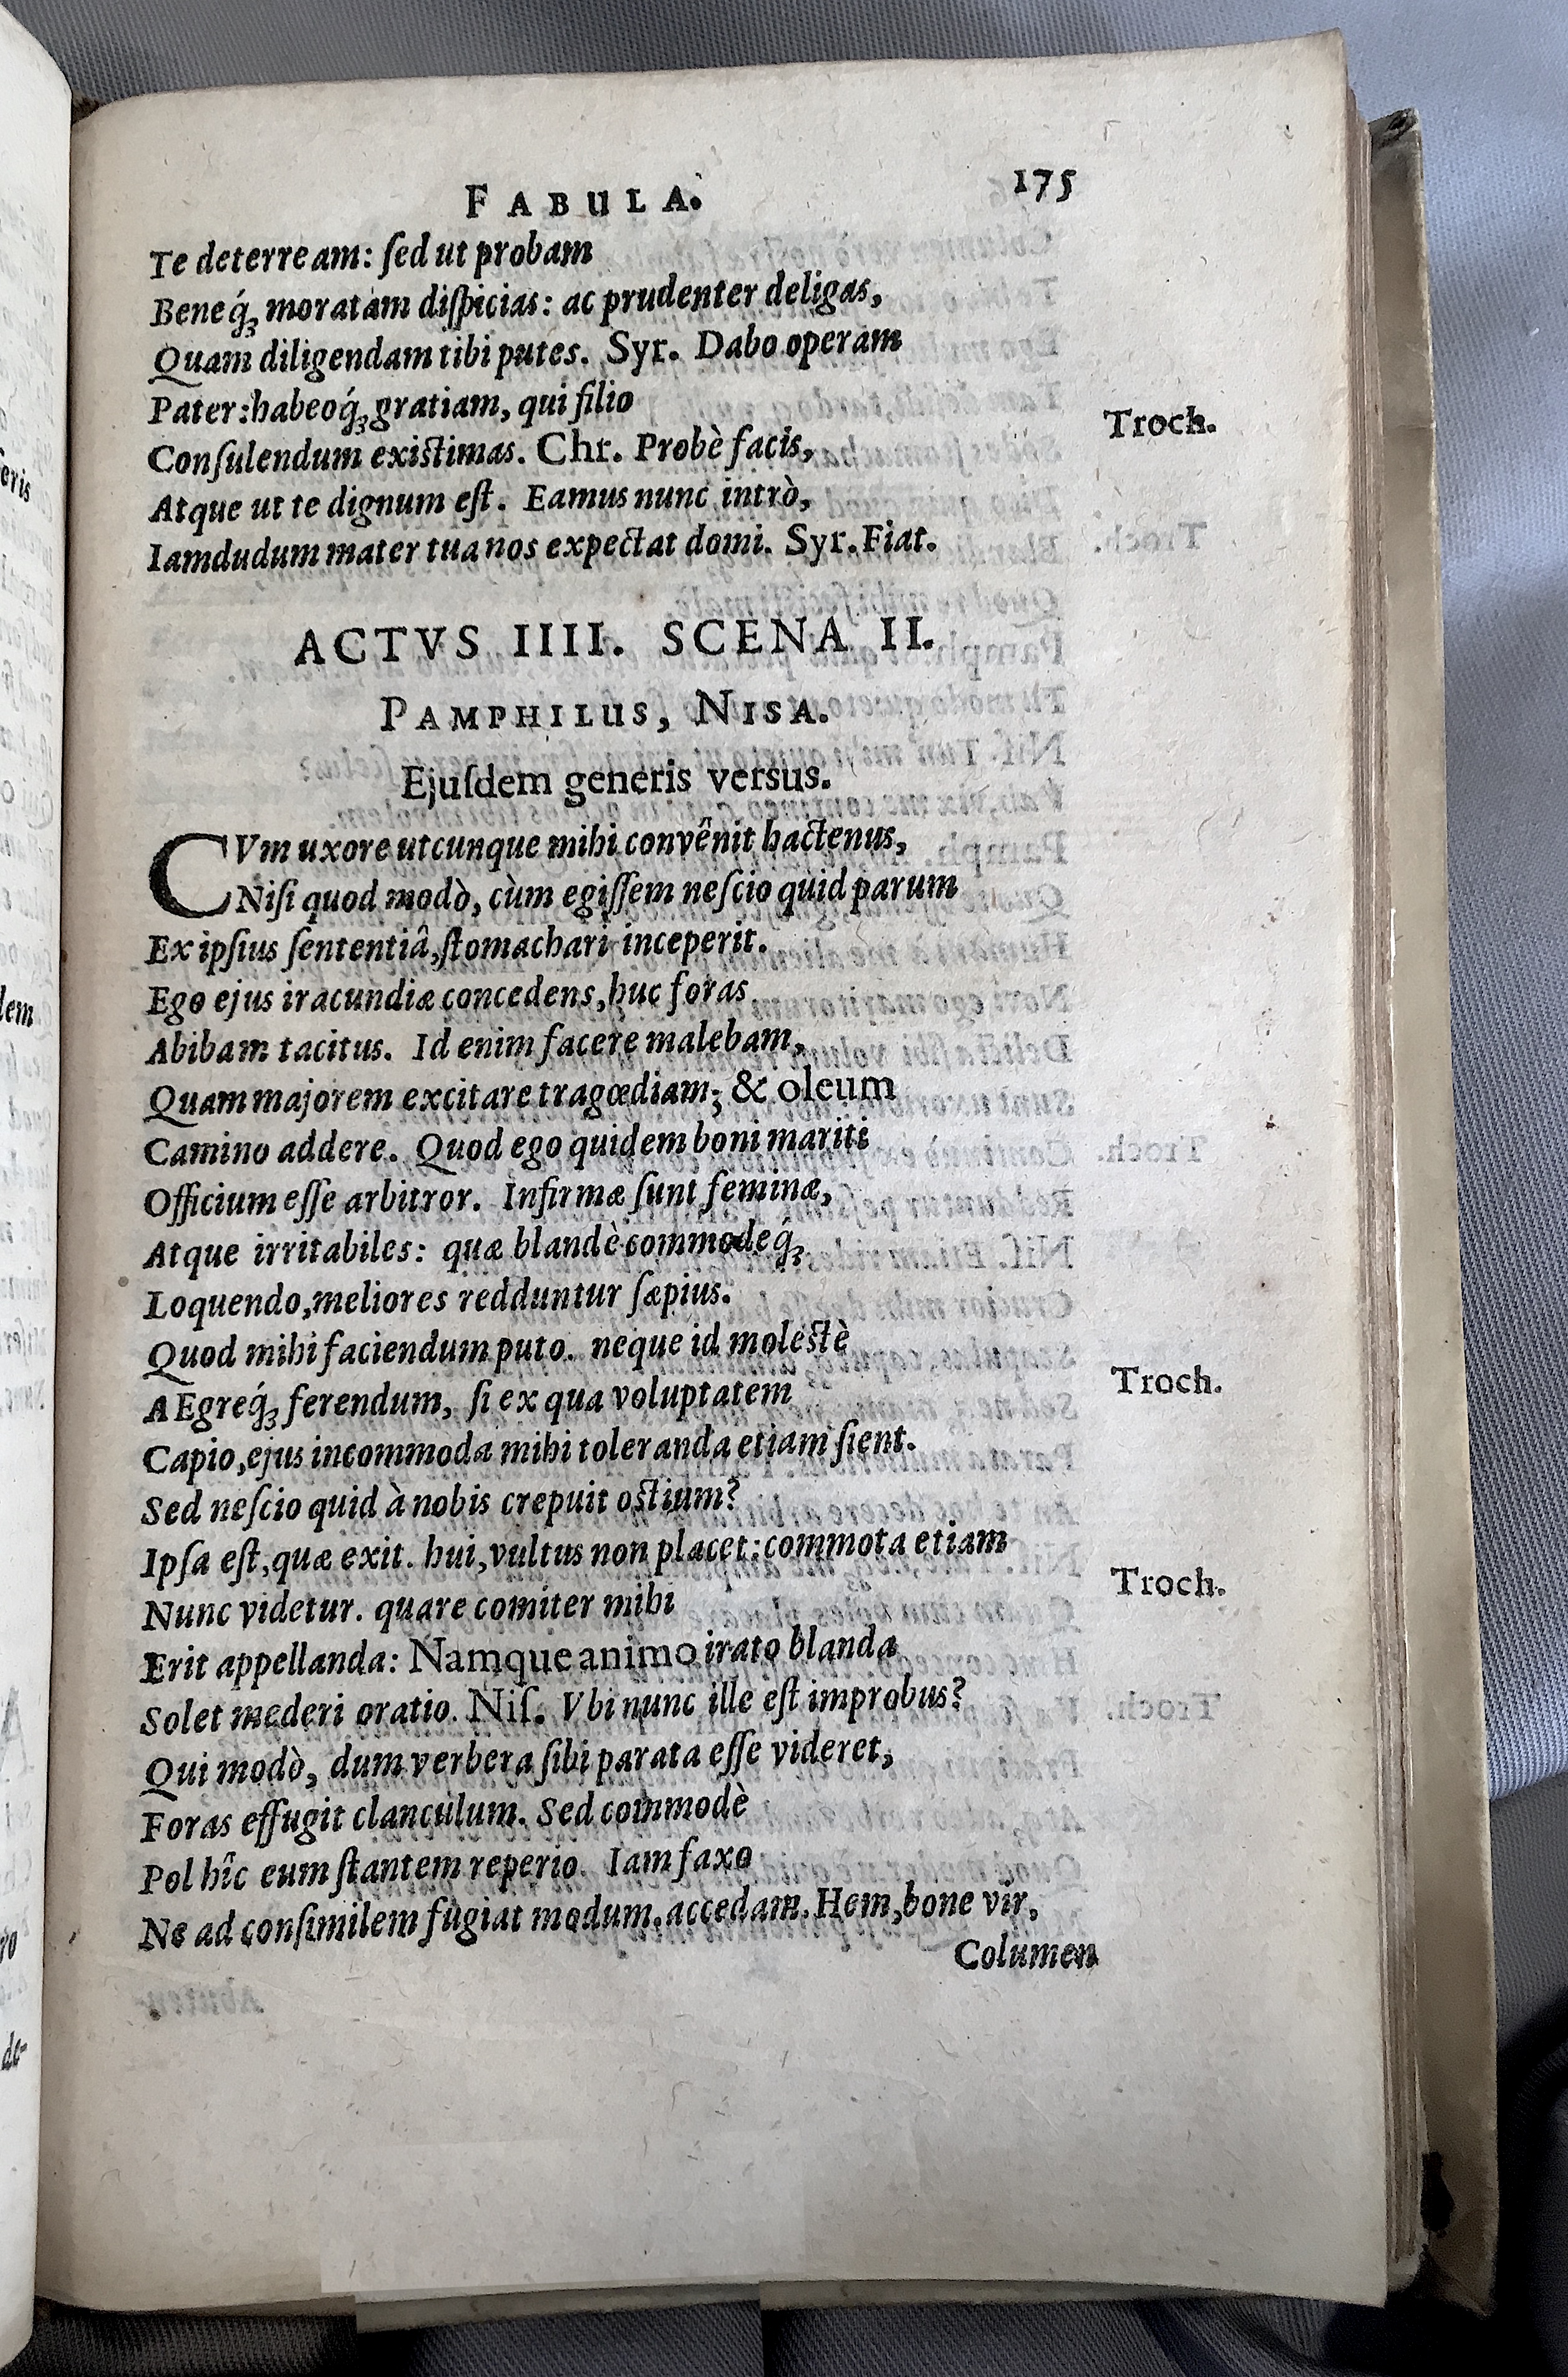 FABULA. 175
Te deterream: ſed ut probam
Beneq́ꝫ moratam diſpicias: ac prudenter deligas,
Quam diligendam tibi putes. Syr. Dabo operam
Pater: habeoq́ꝫ gratiam, qui filio Troch.
Conſulendum existimas. Chr. Probè facis,
Atque ut te dignum eſt. Eamus nunc intrò,
Iamdudum mater tua nos expectat domi. Syr. Fiat.
ACTVS IIII. SCENA II.
PAMPHILUS, NISA.
Ejuſdem generis versus.
CVm uxore utcunque mihi convênit hactenus,
Niſi quod modò, cùm egiſſem neſcio quid parum
Ex ipſius ſententiâ, ſtomachari inceperit.
Ego ejus iracundiæ concedens, huc foras
Abibam tacitus. Id enim facere malebam,
Quam majorem excitare tragœdiam; & oleum
Camino addere. Quod ego quidem boni mariti
Officium eſſe arbitror. Infirmæ ſunt feminæ,
Atque irritabiles: quæ blandè commodeq́ꝫ
Loquendo, meliores redduntur ſæpius.
Quod mihi faciendum puto. neque id molestè
AEgreq́ꝫ ferendum, ſi ex qua voluptatem Troch.
Capio, ejus incommoda mihi toleranda etiam ſient.
Sed neſcio quid à nobis crepuit ostium?
Ipſa eſt, quæ exit. hui, vultus non placet: commota etiam
Nunc videtur. quare comiter mihi Troch.
Erit appellanda: Namque animo irato blanda
Solet mederi oratio. Niſ. Vbi nunc ille eſt improbus?
Qui modò, dum verbera ſibi parata eſſe videret,
Foras effugit clanculum. Sed commodè
Pol hîc eum ſtantem reperio. Iam faxo
Ne ad conſimilem fugiat modum. accedam. Hem, bone vir,
Columen
eris
dem
ro
de-